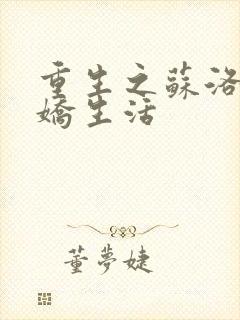 重生之蘇洛
嬌生活
董夢婕